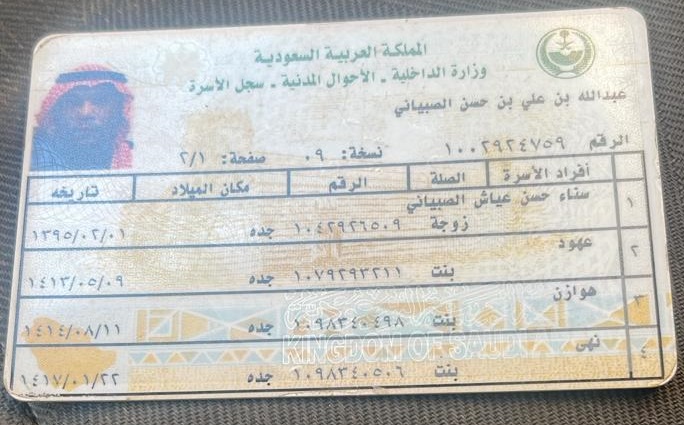 المملكة العربية السعودية
وزارة الداخلية - الأحوال المدنية - سجل الأسرة
عبدالله بن علي بن حسن الصبياني
الرقم ١٠٠٢٩٢٤٧٥٩ نسخة: ٠٩ صفحة: ٢/١
أفراد الأسرة الصلة الرقم مكان الميلاد تاريخه
١ سناء حسن عياش الصبياني
زوجة ١٠٤٢٩٢٦٥٠٩ جده ١٣٩٥/٠٢/٠١
٢ عهود
بنت ١٠٧٩٢٩٣٢١١ جده ١٤١٣/٠٥/٠٩
٣ هوازن
بنت ١٠٩٨٣٤٠٤٩٨ جده ١٤١٤/٠٨/١١
KINGDOM OF SAUDI
٤ نهى
بنت ١٠٩٨٣٤٠٥٠٦ جده ١٤١٧/٠١/٢٢